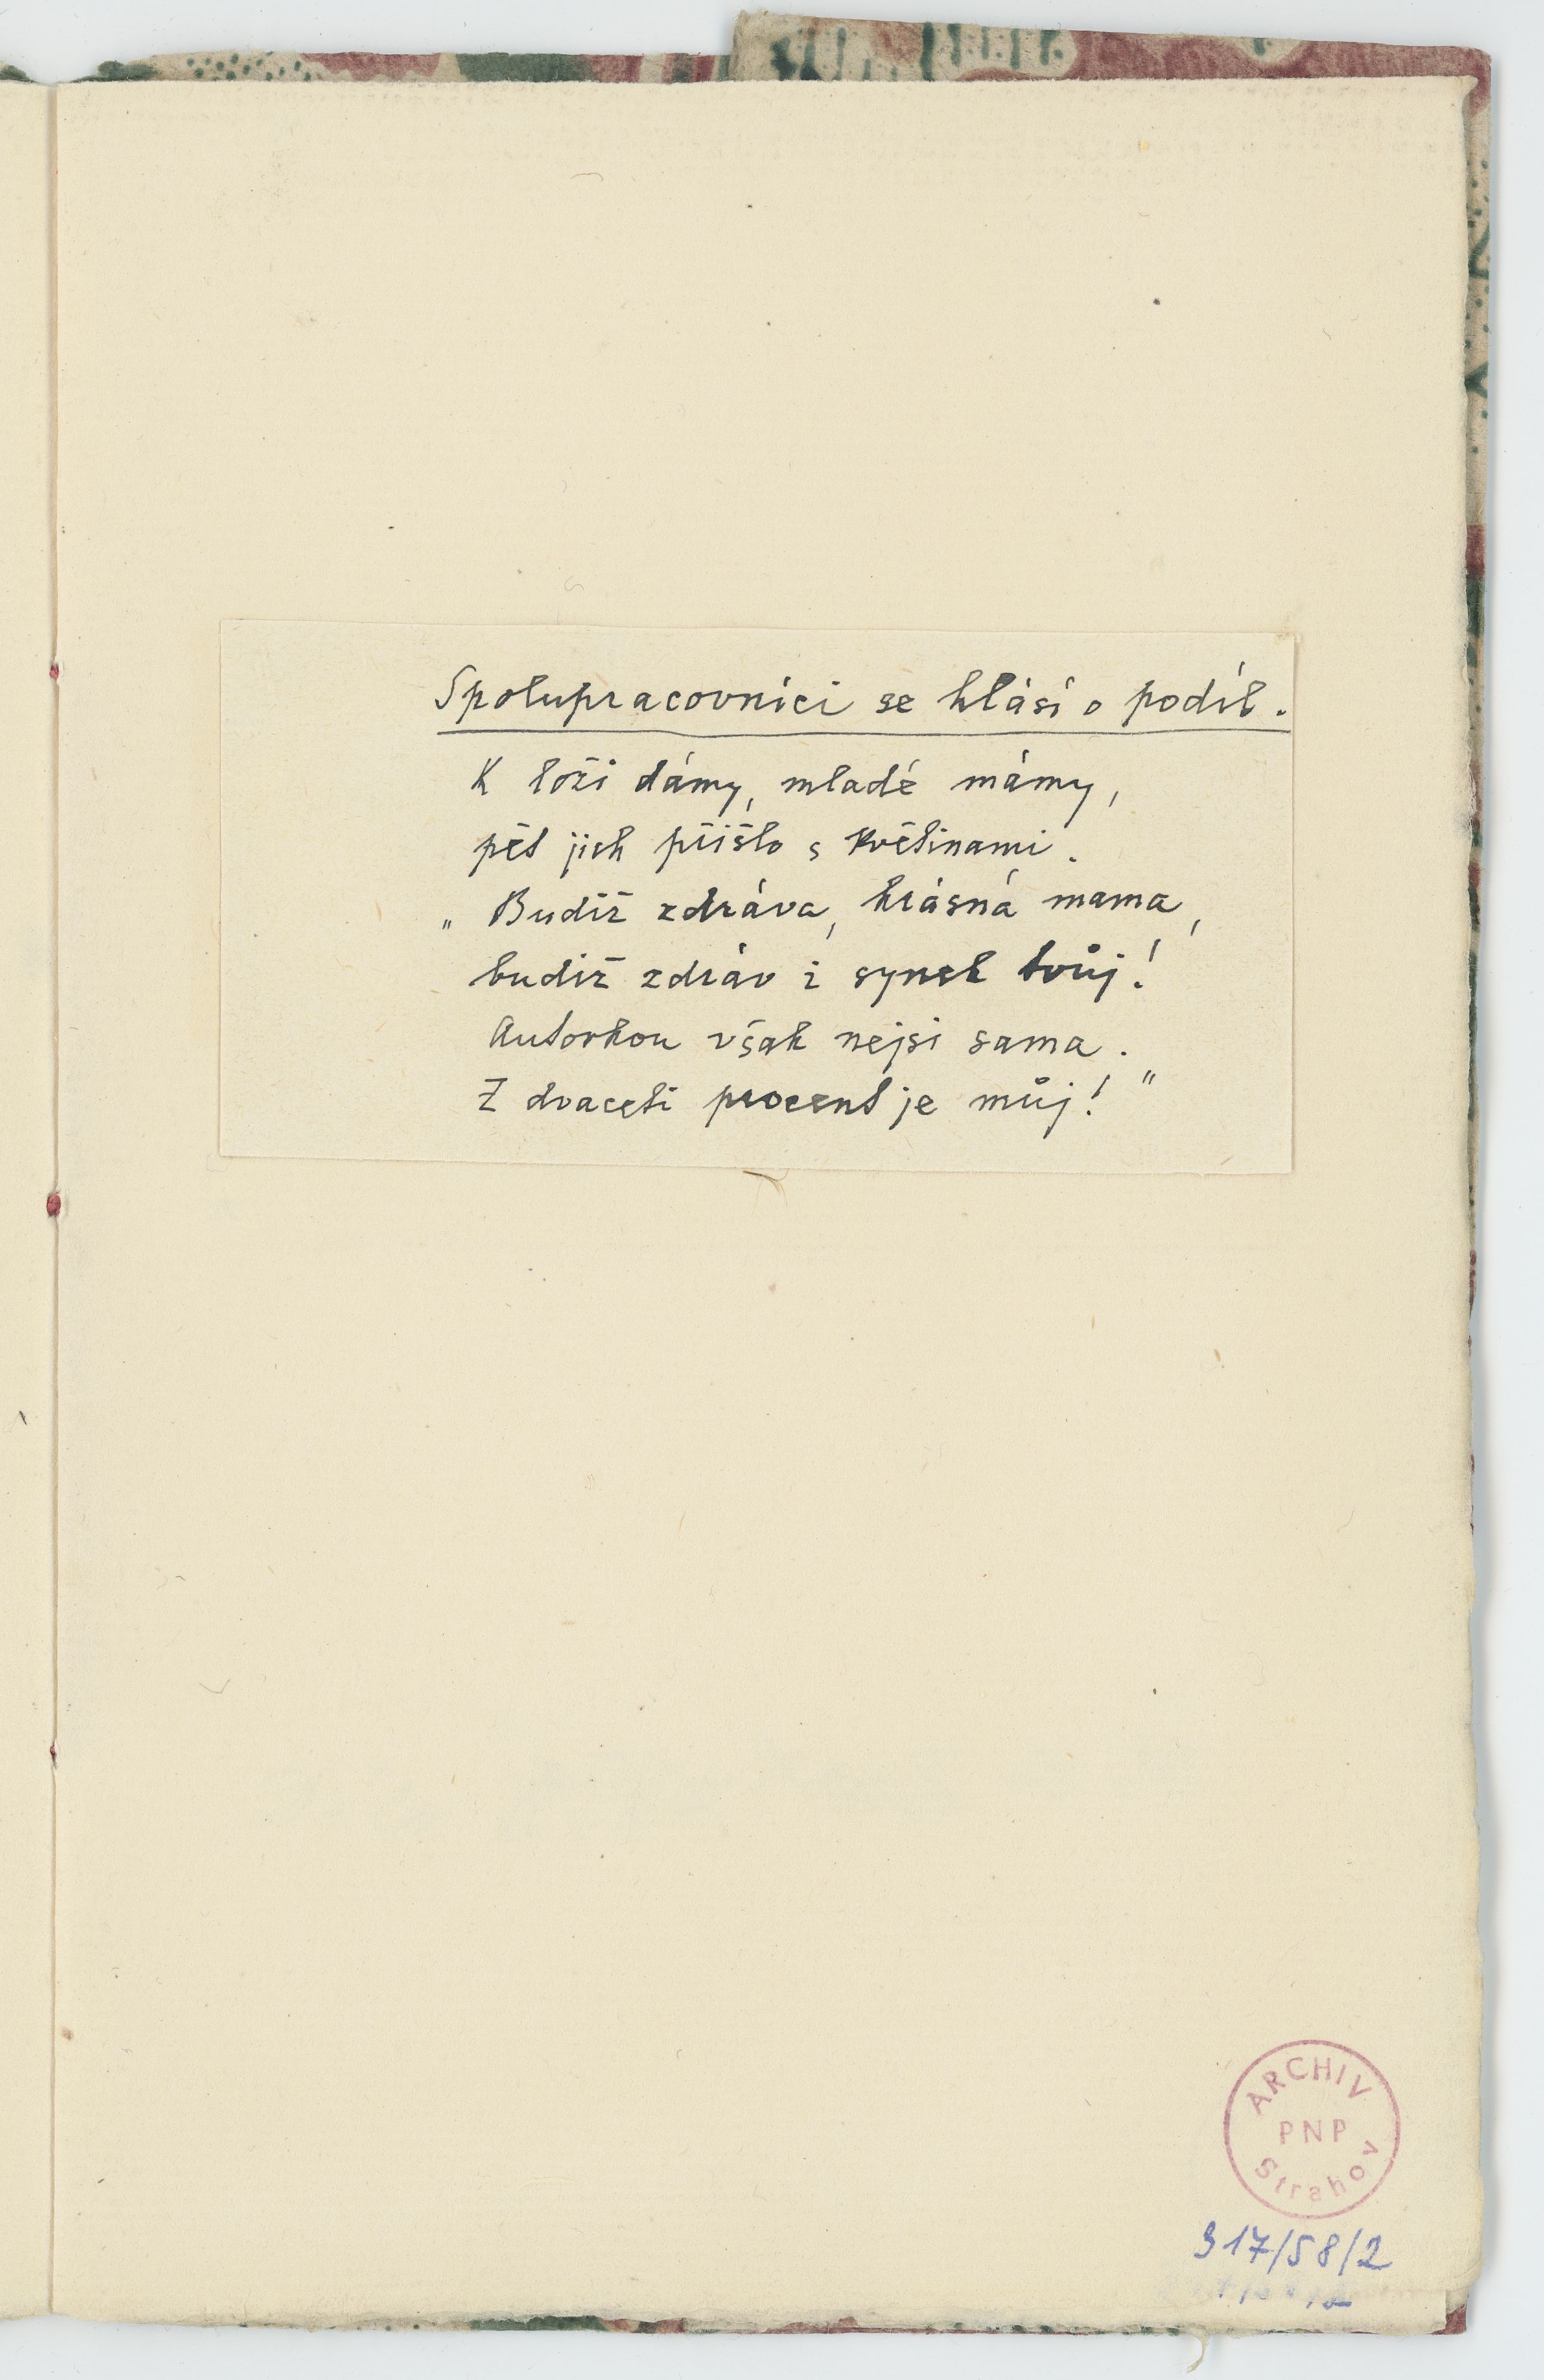 Spolupracovníci se hlásí o podíl.
K loži dámy, mladé mámy,
pět jich přišlo s květinami.
„Budiž zdráva, krásná mama,
budiž zdráv i synek tvůj!
Autorkou však nejsi sama.
Z dvaceti procent je můj!"
ARCHIV
PNP
Strahov
317/58/2